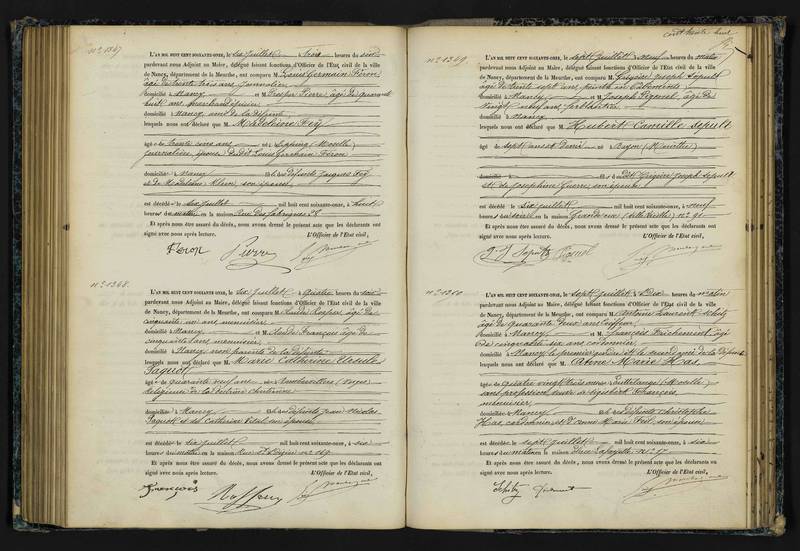 n° 1347
L'AN MIL HUIT CENT SOIXANTE-ONZE, le six juillet à trois heures du soir
pardevant nous Adjoint au Maire, délégué faisant fonctions d'Officier de l'État civil de la ville
de Nancy, département de la Meurthe, ont comparu M. Louis Germain Féron
âgé de trente trois ans, journalier
domicilié à Nancy et M. Prosper Pierre, âgé de quarante
huit ans,
domicilié à Nancy, ami de la défunte
lesquels nous ont déclaré que M. Madeleine Fey
âgée de trente cinq ans né à Epping (Moselle)
journalière, épouse de dit Louis Germain Féron
domiciliée à Nancy fille des défunts Jacques Fey
et de Madeleine Klein, son épouse
est décédée le six juillet mil huit cent soixante-onze, à huit
heures du matin en la maison rue des fabriques 28
Et après nous être assuré du décès, nous avons dressé le présent acte que les déclarants ont
signé avec nous après lecture. L'Officier de l'État civil,
Féron Pierre
n° 1348
L'AN MIL HUIT CENT SOIXANTE-ONZE, le six juillet à quatre heures du soir
pardevant nous Adjoint au Maire, délégué faisant fonctions d'Officier de l'État civil de la ville
de Nancy, département de la Meurthe, ont comparu M.
cinquante un ans menuisier
domicilié à Nancy et M. François âgé de
cinquante ans menuisier
domicilié à Nancy non parents de la défunte
lesquels nous ont déclaré que M. Marie Catherine Ursule
Paquot
âgée de quarante neuf ans née à Vosges
religieuse de la doctrine chrétienne
domiciliée à Nancy fille des défunts Jean Nicolas
Paquot et de Catherine son épouse
est décédée le six juillet mil huit cent soixante-onze, à six
heures du matin en la maison Rue St Dizier n° 169
Et après nous être assuré du décès, nous avons dressé le présent acte que les déclarants ont
signé avec nous après lecture. L'Officier de l'État civil,
François
cent trente huit
n° 1349
L'AN MIL HUIT CENT SOIXANTE-ONZE, le sept juillet à neuf heures du matin
pardevant nous Adjoint au Maire, délégué faisant fonctions d'Officier de l'État civil de la ville
de Nancy, département de la Meurthe, ont comparu M. Grégoire Joseph
âgé de trente sept ans, peintre en bâtiments
domicilié à Nancy et M. Joseph Pigonel, âgé de
vingt neuf ans ferblantier
domicilié à Nancy
lesquels nous ont déclaré que M. Hubert Camille
âgé de sept ans et demi né à Bayon (Meurthe)
domicilié à fils de dit Grégoire Joseph
et de Joséphine Guerre, son épouse
est décédé le six juillet mil huit cent soixante-onze, à neuf
heures du soir en la maison Grande rue (ville vieille) n° 91
Et après nous être assuré du décès, nous avons dressé le présent acte que les déclarants ont
signé avec nous après lecture. L'Officier de l'État civil,
n° 1350
L'AN MIL HUIT CENT SOIXANTE-ONZE, le sept juillet à dix heures du matin
pardevant nous Adjoint au Maire, délégué faisant fonctions d'Officier de l'État civil de la ville
de Nancy, département de la Meurthe, ont comparu M. Antoine Laurent
âgé de quarante deux ans coiffeur
domicilié à Nancy et M. François âgé
de cinquante six ans cordonnier
domicilié à Nancy le premier gendre et le second ami de la défunte
lesquels nous ont déclaré que M. Anne Marie Has
âgée de quatre vingt trois ans née à Puttelange (Moselle)
sans profession, veuve de Sigisbert François,
menuisier
domiciliée à Nancy fille des défunts Christophe
Has, cordonnier, et d'Anne Marie son épouse
est décédée le sept juillet mil huit cent soixante-onze, à six
heures du matin en la maison Place Lafayette n° 17
Et après nous être assuré du décès, nous avons dressé le présent acte que les déclarants ont
signé avec nous après lecture. L'Officier de l'État civil,